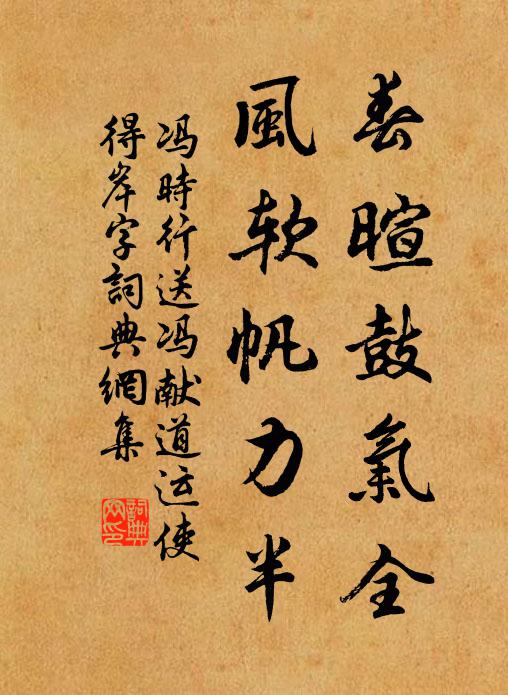 春暄鼓氣全
風软帆力半
冯時行送冯献道运使
得岸字詞典網集
詞典
网印